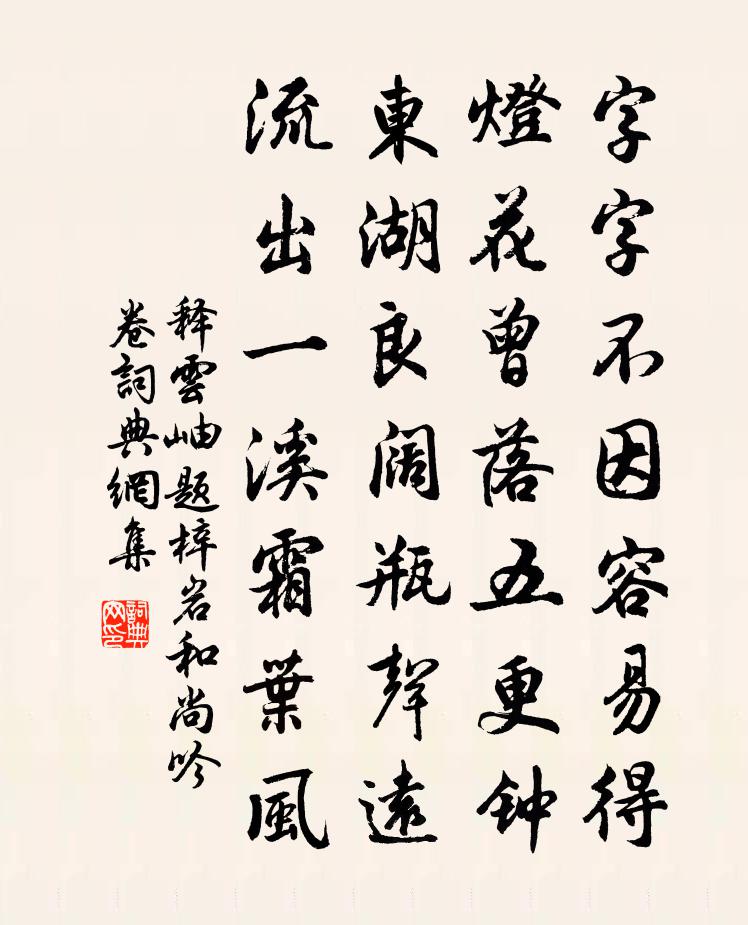 字字不因容易得
燈花曾落五更钟
東湖良阔瓶聲遠
流出一溪霜葉風
释雲岫题梓岩和尚吟
卷詞典網集
詞典
网印